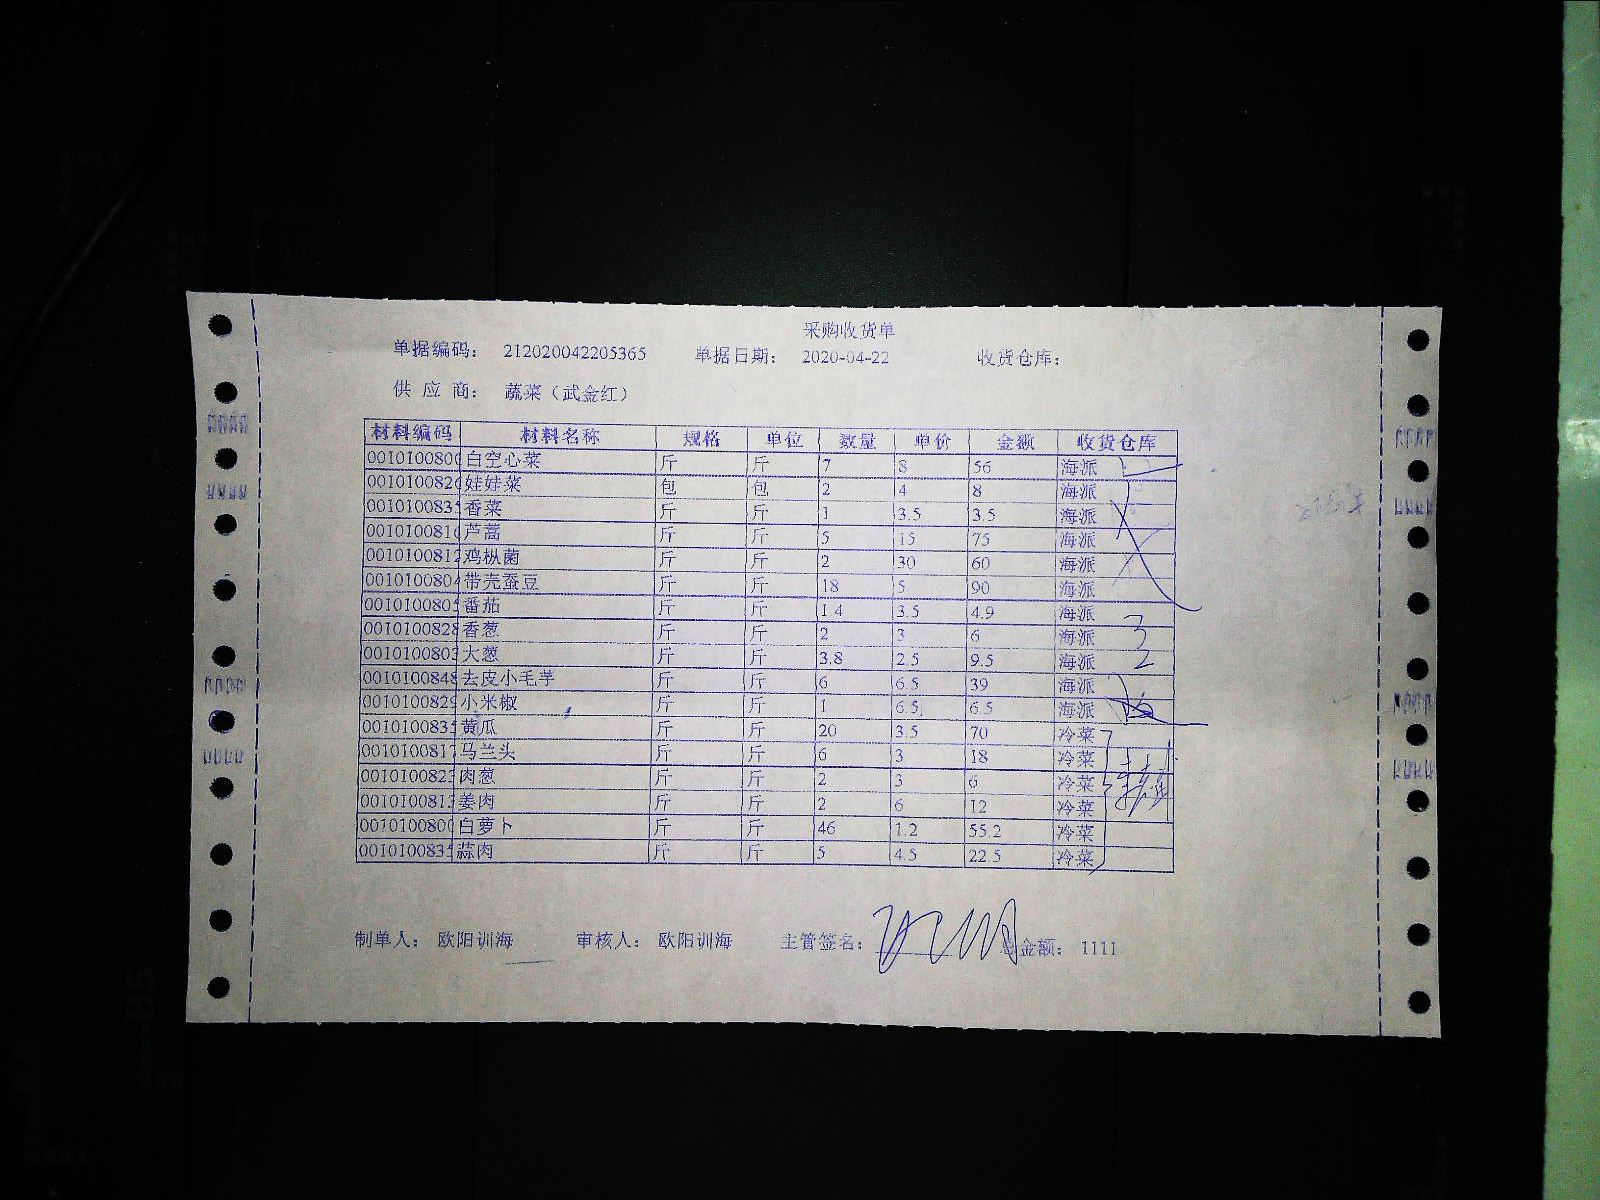 采购收货单
单据编码： 212020042205365 单据日期： 2020-04-22 收货仓库：
供 应 商： 蔬菜（武金红）
材料编码 材料名称 规格 单位 数量 单价 金额 收货仓库
0010100800 白空心菜 斤 斤 7 8 56 海派
0010100826 娃娃菜 包 包 2 4 8 海派
001010083 香菜 斤 斤 1 3.5 3.5 海派
001010081 芦蒿 斤 斤 5 15 75 海派
0010100812 鸡枞菌 斤 斤 2 30 60 海派
0010100804 带壳蚕豆 斤 斤 18 5 90 海派
001010080 番茄 斤 斤 1.4 3.5 4.9 海派
0010100828 香葱 斤 斤 2 3 6 海派 3
0010100803 大葱 斤 斤 3.8 2.5 9.5 海派 2
0010100848 去皮小毛芋 斤 斤 6 6.5 39 海派
0010100829 小米椒 斤 斤 1 6.5 6.5 海派
001010083 黄瓜 斤 斤 20 3.5 70 冷菜
0010100817 马兰头 斤 斤 6 3 18 冷菜
0010100823 肉葱 斤 斤 2 3 6 冷菜
0010100813 姜肉 斤 斤 2 6 12 冷菜
0010100800 白萝卜 斤 斤 46 1.2 55.2 冷菜
001010083 蒜肉 斤 斤 5 4.5 22.5 冷菜
制单人： 欧阳训海 审核人： 欧阳训海 主管签名： 总金额： 1111